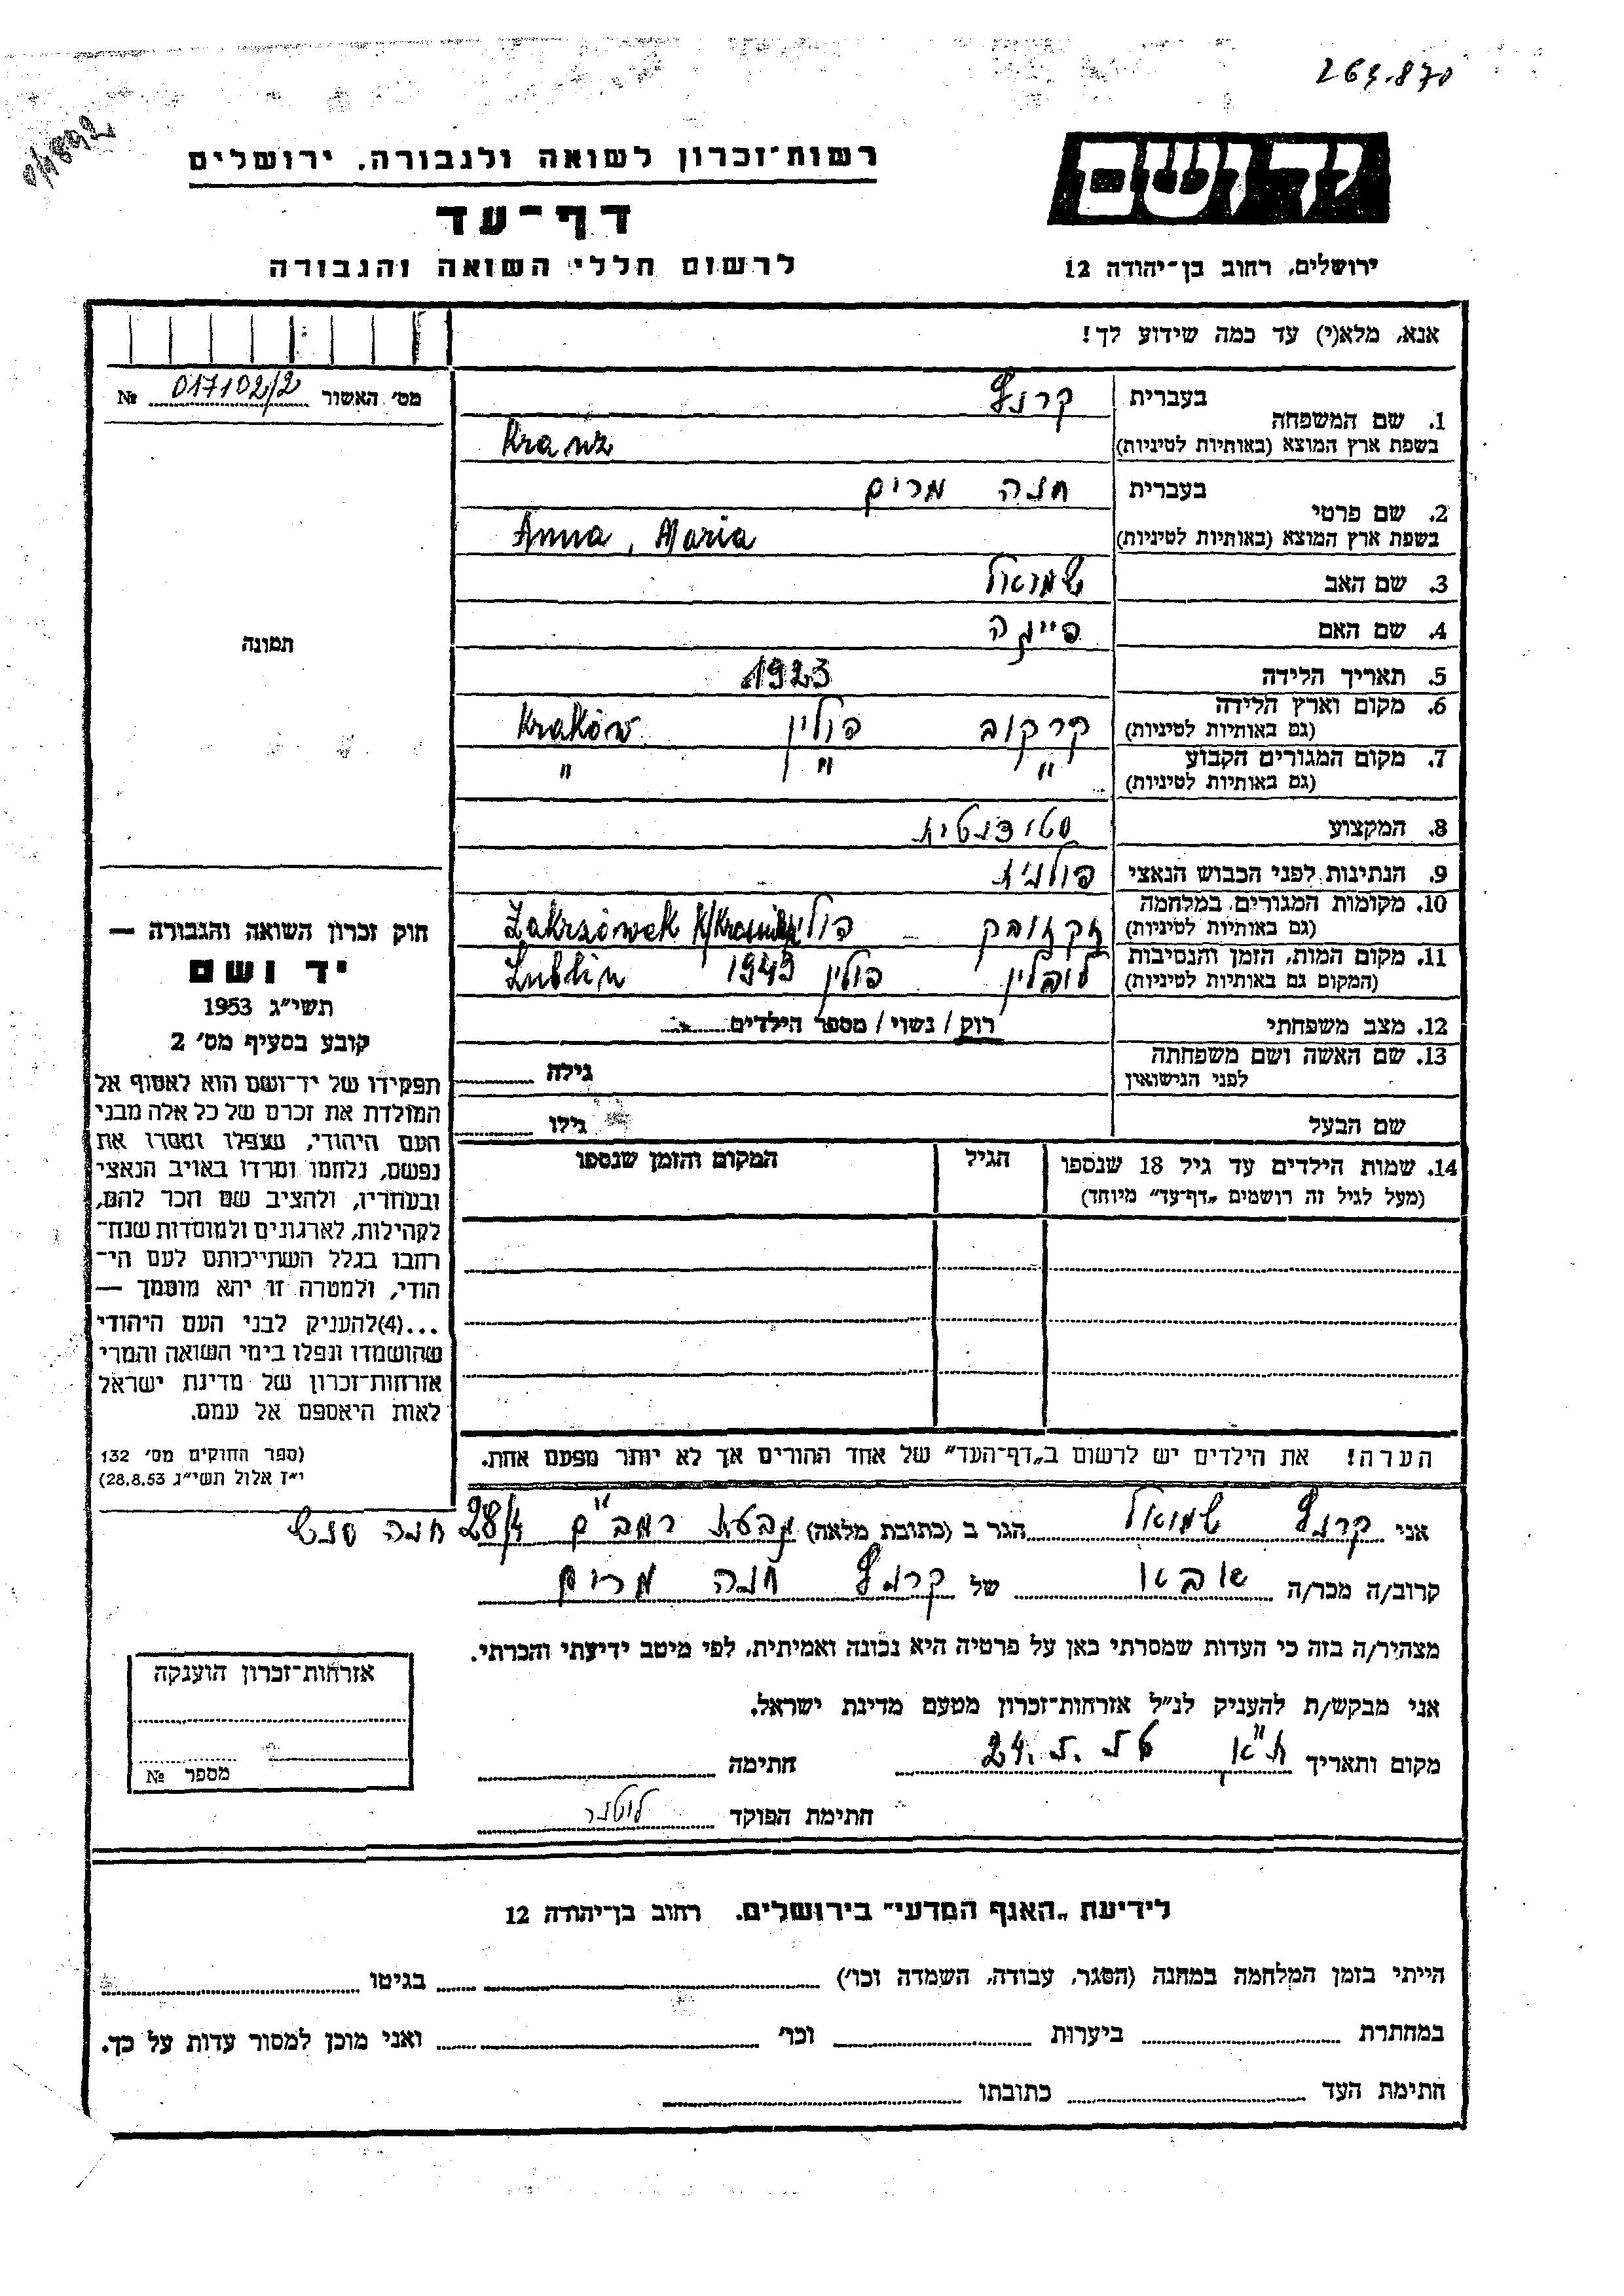 269.870
רשות־זכרון לשואה ולגבורה. ירושלים
דף־עד
לרשום חללי השואה והגבורה
יד ושם
ירושלים, רחוב בן־יהודה 12
אנא, מלא(י) עד כמה שידוע לך!
מס' האשור 017102/2 №
1. שם המשפחה
בעברית קרנץ
בשפת ארץ המוצא (באותיות לטיניות) Kranz
2. שם פרטי
בעברית חנה מרים
בשפת ארץ המוצא (באותיות לטיניות) Anna, Maria
3. שם האב שמואל
4. שם האם
5. תאריך הלידה 1923
6. מקום וארץ הלידה קרקוב פולין Kraków
(גם באותיות לטיניות)
7. מקום המגורים הקבוע " " "
(גם באותיות לטיניות)
8. המקצוע סטודנטית
9. הנתינות לפני הכבוש הנאצי פולנית
10. מקומות המגורים במלחמה פולין Zakrzówek
(גם באותיות לטיניות)
11. מקום המות, הזמן והנסיבות לובלין פולין 1943 Lublin
(המקום גם באותיות לטיניות)
12. מצב משפחתי רוק / נשוי / מספר הילדים
13. שם האשה ושם משפחתה גילה
לפני הנישואין
שם הבעל גילו
14. שמות הילדים עד גיל 18 שנספו הגיל המקום והזמן שנספו
(מעל לגיל זה רושמים „דף־עד" מיוחד)
הערה! את הילדים יש לרשום ב„דף־העד" של אחד ההורים אך לא יותר מפעם אחת.
תמונה
חוק זכרון השואה והגבורה —
יד ושם
תשי״ג 1953
קובע בסעיף מס' 2
תפקידו של יד־ושם הוא לאסוף אל
המולדת את זכרם של כל אלה מבני
העם היהודי, שנפלו ומסרו את
נפשם, נלחמו ומרדו באויב הנאצי
ובעוזריו, ולהציב שם וזכר להם,
לקהילות, לארגונים ולמוסדות שנח־
רבו בגלל השתייכותם לעם הי־
הודי, ולמטרה זו יהא מוסמך —
...(4)להעניק לבני העם היהודי
שהושמדו ונפלו בימי השואה והמרי
אזרחות־זכרון של מדינת ישראל
לאות היאספם אל עמם.
(ספר החוקים מס' 132
י״ז אלול תשי״ג 28.8.53)
אני קרנץ שמואל הגר ב (כתובת מלאה) גבעת רמב"ם 28/4 חנה סנש
קרוב/ה מכר/ה אבא של קרנץ חנה מרים
מצהיר/ה בזה כי העדות שמסרתי כאן על פרטיה היא נכונה ואמיתית, לפי מיטב ידיעתי והכרתי.
אני מבקש/ת להעניק לנ״ל אזרחות־זכרון מטעם מדינת ישראל.
מקום ותאריך ת"א חתימה
חתימת הפוקד
אזרחות־זכרון הוענקה
מספר №
לידיעת „האגף המדעי" בירושלים, רחוב בן־יהודה 12
הייתי בזמן המלחמה במחנה (הסגר, עבודה, השמדה וכו') בגיטו
במחתרת ביערות וכו' ואני מוכן למסור עדות על כך.
חתימת העד כתובתו